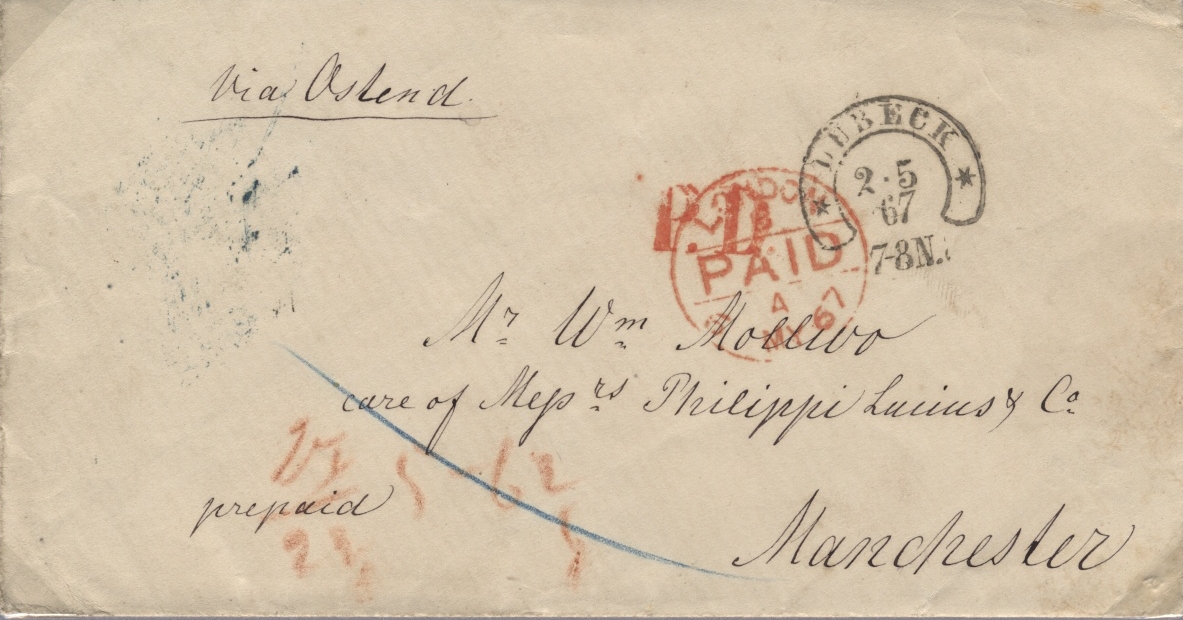 Via Ostend
LÜBECK
2.5
67
7-8N.
P.D.
LONDON
PAID
A
MY 67
Mr Wm Mollwo
care of Messrs Philippi Lucius & Co
prepaid
Manchester